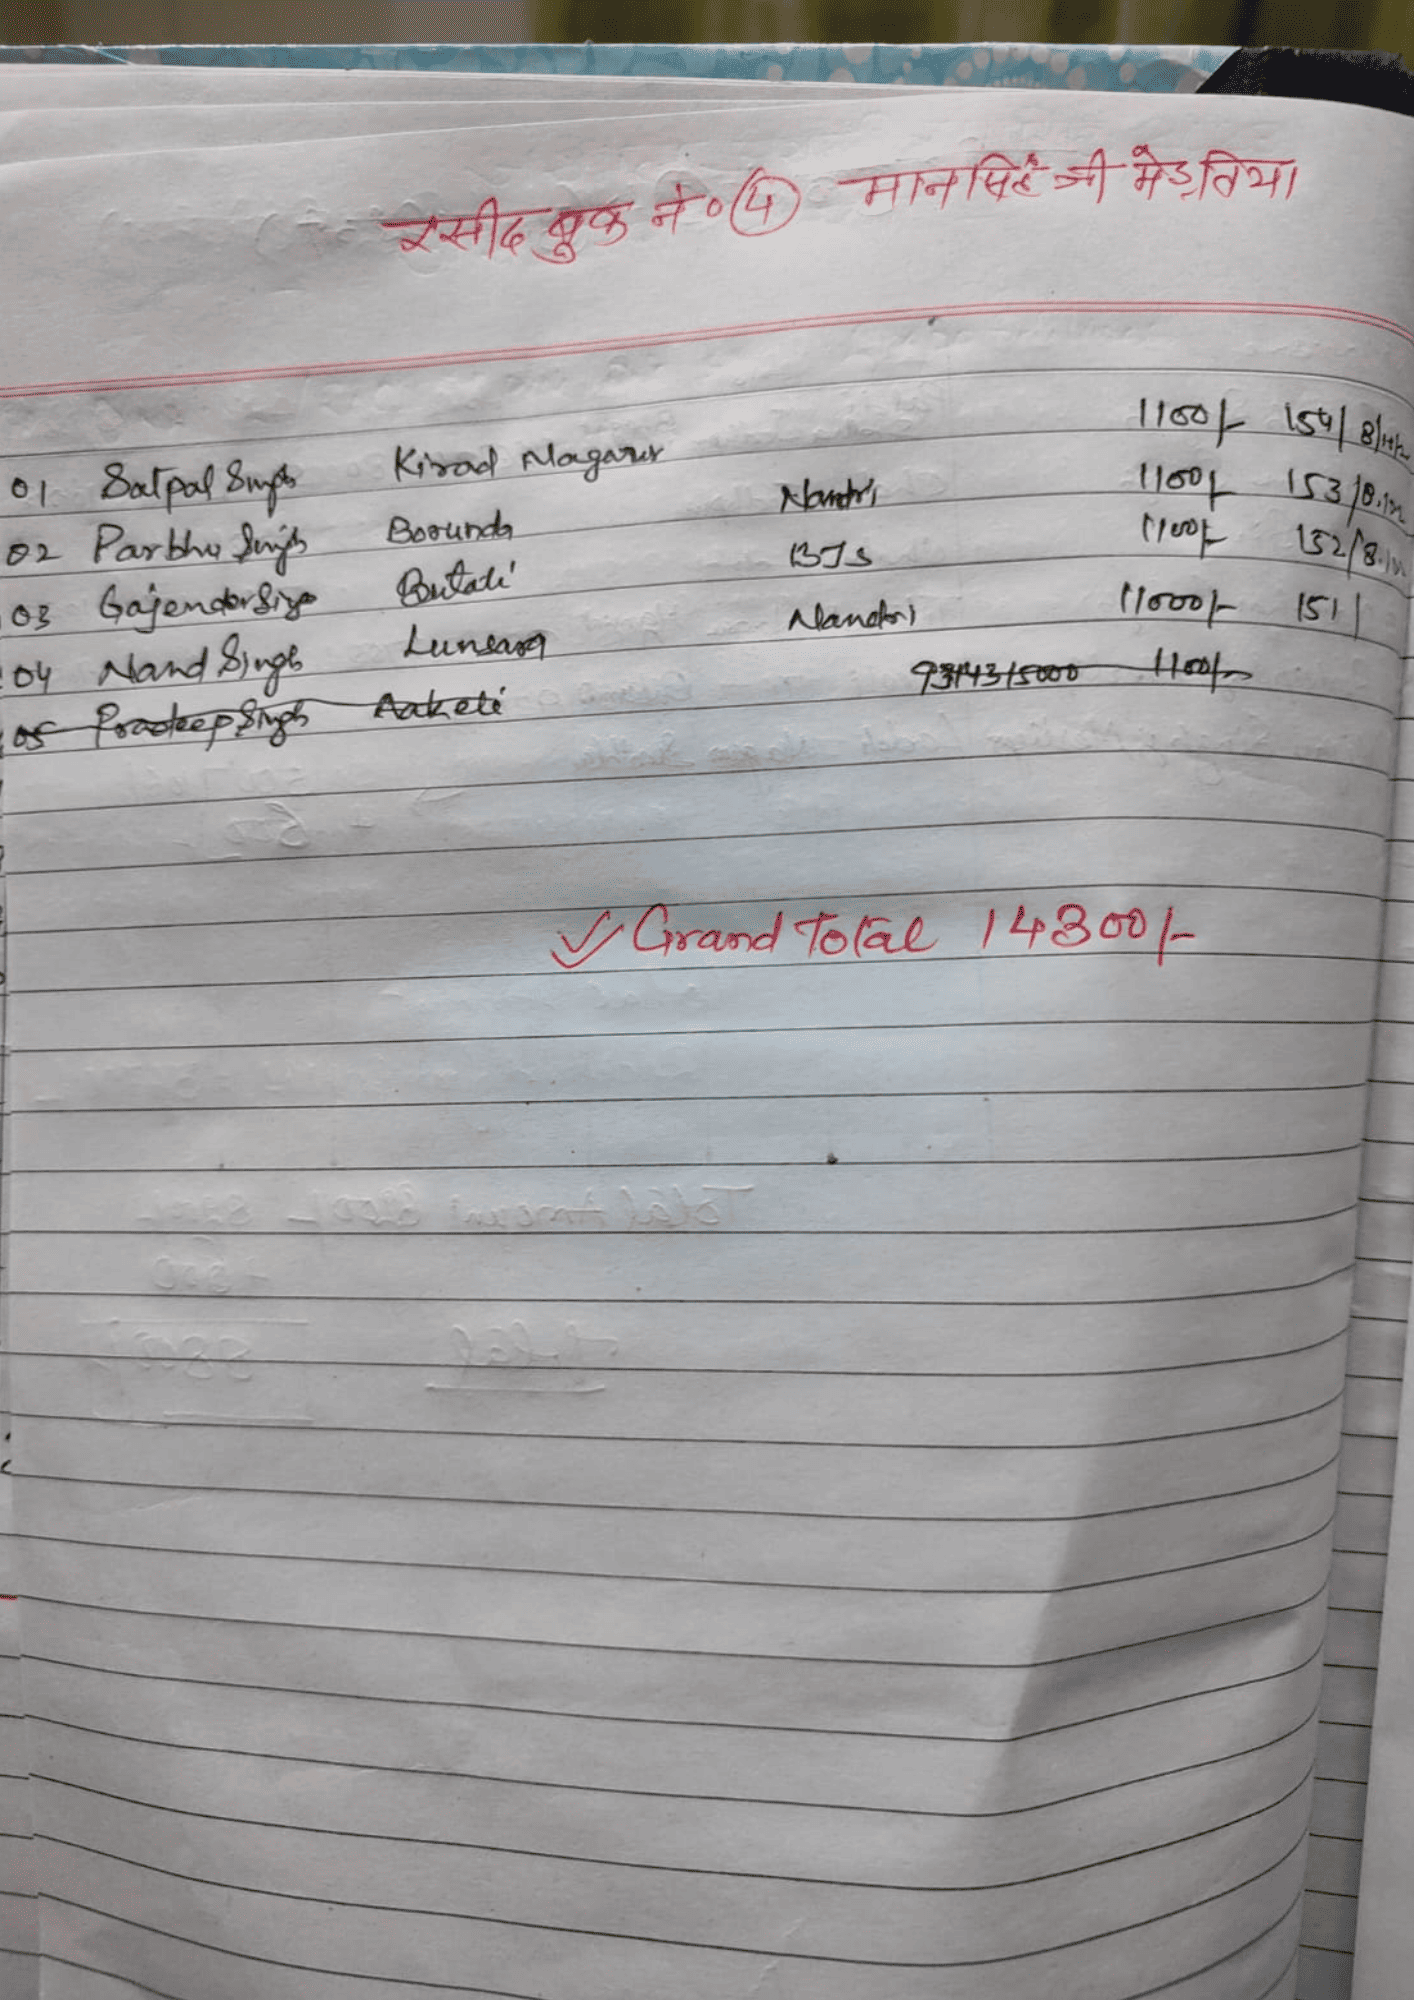 रसीद बुक नं० 4 मानसिंह जी मेड़तिया
01 Satpal Singh Kirad Nagaur 1100/- 154/8/
02 Parbhu Singh Borunda Nandri 1100/- 153/8.
03 Gajender Singh Butati BJS 1100/- 152/8.
04 Nand Singh Lunsara Nandri 11000/- 151/
05 Pradeep Singh Aakeli 9314315000 1100/-
Grand Total 14300/-